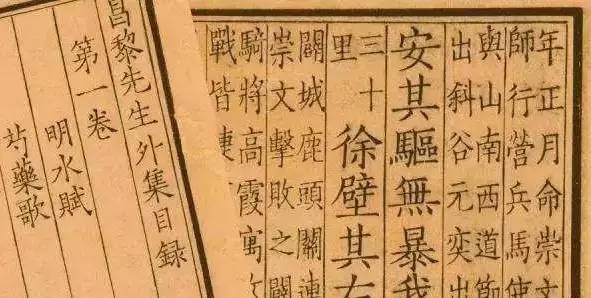 年正月命崇文
師行營兵馬使
與山南西道節
出斜谷元奕出
安其驅無暴我
三十
里
徐壁其右
闢城鹿頭關連
崇文擊敗之闢
騎將高霞寓
戰皆捷
昌黎先生外集目録
第一卷
明水賦
芍藥歌